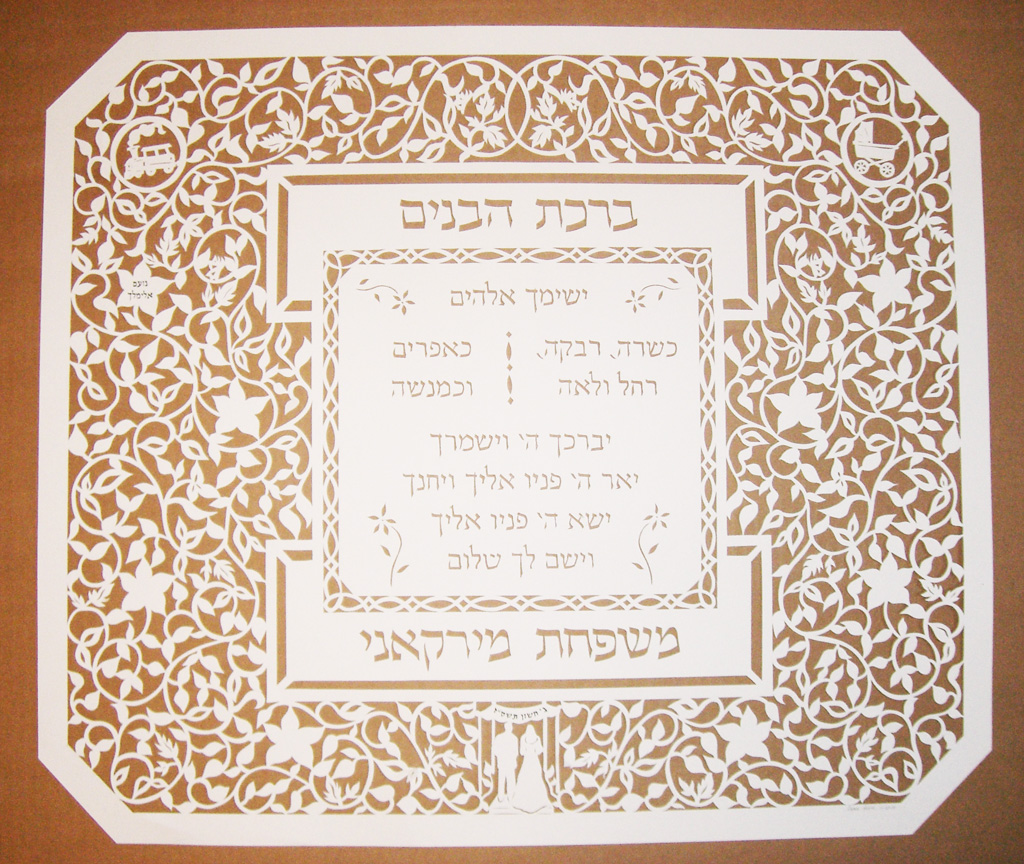 ברכת הבנים
ישימך אלהים
כשרה, רבקה,
רחל ולאה
כאפרים
וכמנשה
יברכך ה' וישמרך
יאר ה' פניו אליך ויחנך
ישא ה' פניו אליך
וישם לך שלום
משפחת מירקאני
נועם
אלימלך
חשון